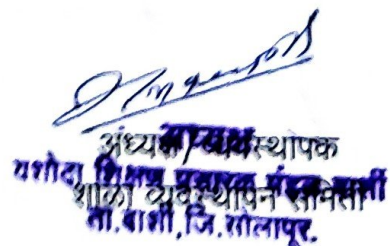 अध्यक्ष/व्यवस्थापक
यशोदा शिक्षण प्रसारक मंडळ बार्शी
शाळा व्यवस्थापन समिती
ता.बार्शी,जि.सोलापूर.